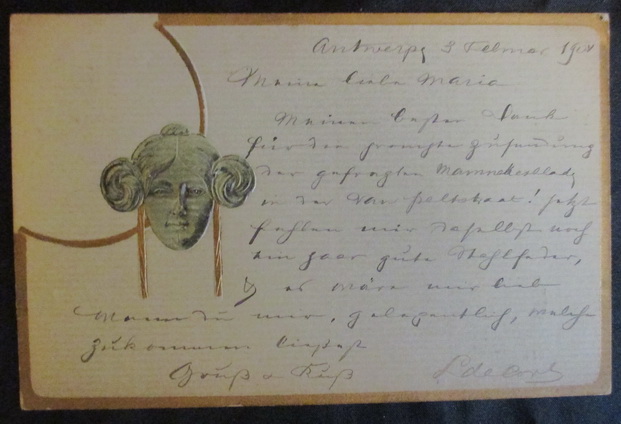 Antwerpen 3 Februar 19
Meine liebe Maria
Meinen besten Dank
für die prompte Zusendung
der gefragten
in der Van jetzt
fehlen mir daselbst noch
ein paar gute Stahlfeder,
es wäre mir lieb
wenn du mir, gelegentlich, welche
zukommen ließest
Gruß & Kuß